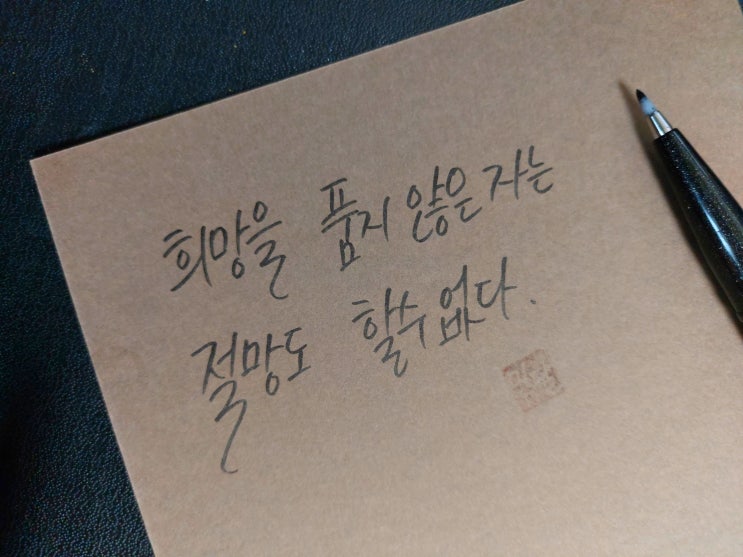 희망을 품지 않은 자는
절망도 할수 없다.